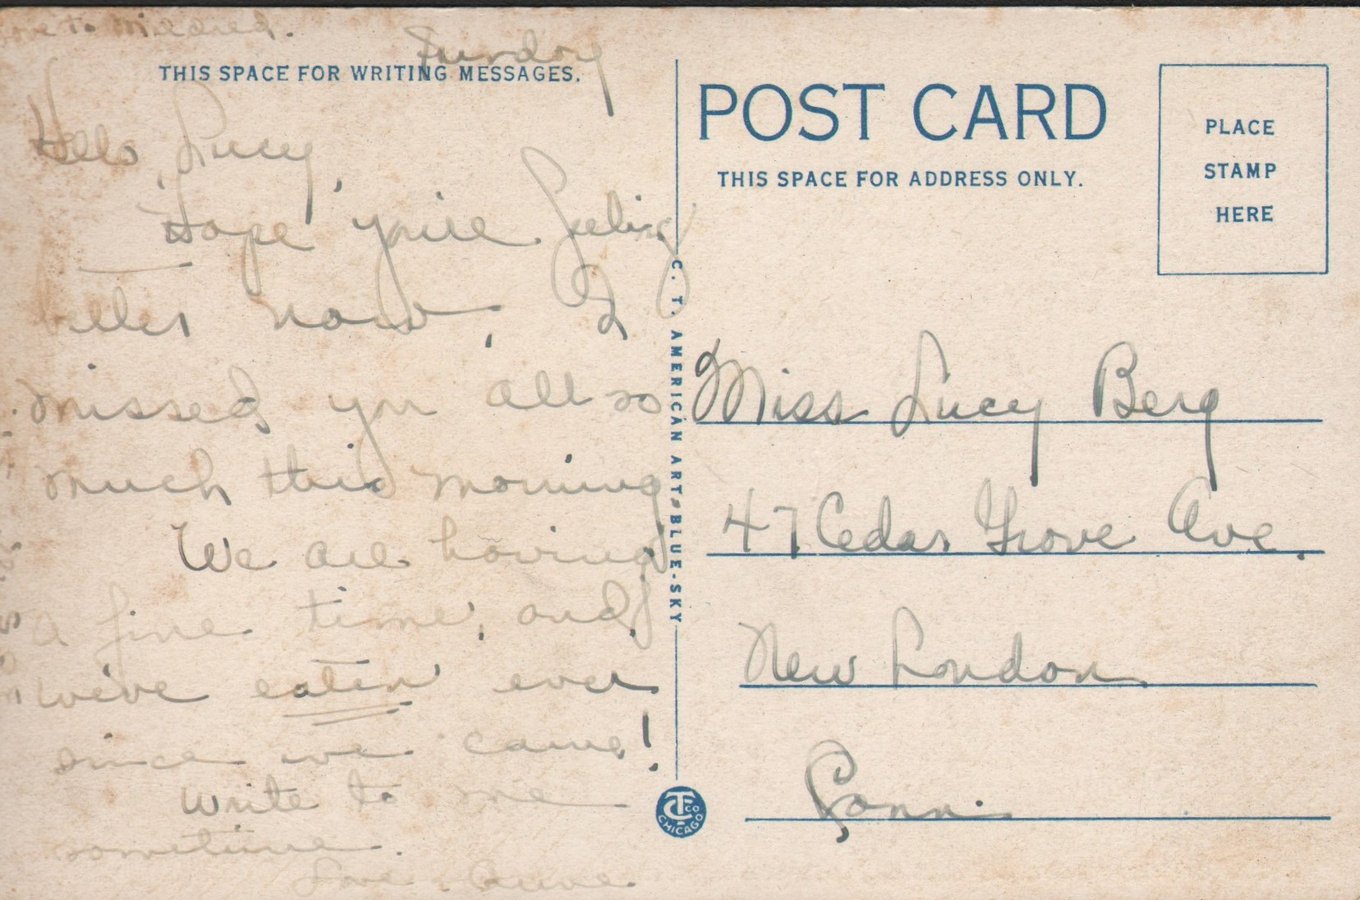 to Mildred.
Sunday
THIS SPACE FOR WRITING MESSAGES.
Hello Lucy,
Hope you're feeling
better now. I
missed you all so
much this morning
We are having
a fine time, and
we've eaten ever
since we came!
Write to me
sometime.
Love
POST CARD
THIS SPACE FOR ADDRESS ONLY.
PLACE
STAMP
HERE
C. T. AMERICAN ART BLUE-SKY
Miss Lucy Berg
47 Cedar Grove Ave.
New London
Conn.
CT CO
CHICAGO